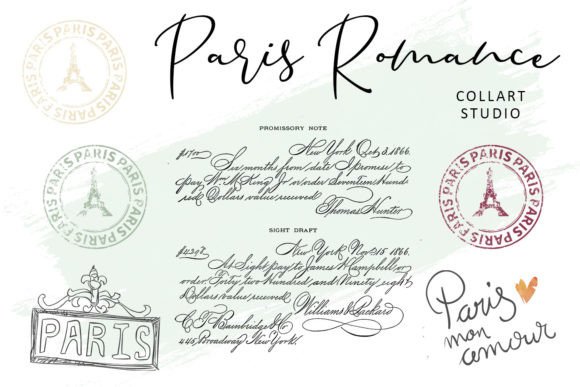 Paris Romance
COLLART
STUDIO
PARIS PARIS PARIS PARIS PARIS
PROMISSORY NOTE
$1700 New York Oct 3, 1866.
Six months from date I promise to
pay Wm. M. King Jr. or order Seventeen Hund
red Dollars value received
Thomas Hunter
PARIS PARIS PARIS PARIS PARIS
PARIS PARIS PARIS PARIS PARIS
SIGHT DRAFT
$4298 New York Nov. 15 1866.
At Sight pay to James Campbell, or
order. Forty two Hundred and Ninety eight
Dollars value received
Williams & Packard
C. T. Bainbridge & Co
445, Broadway New York.
PARIS
Paris
mon
amour